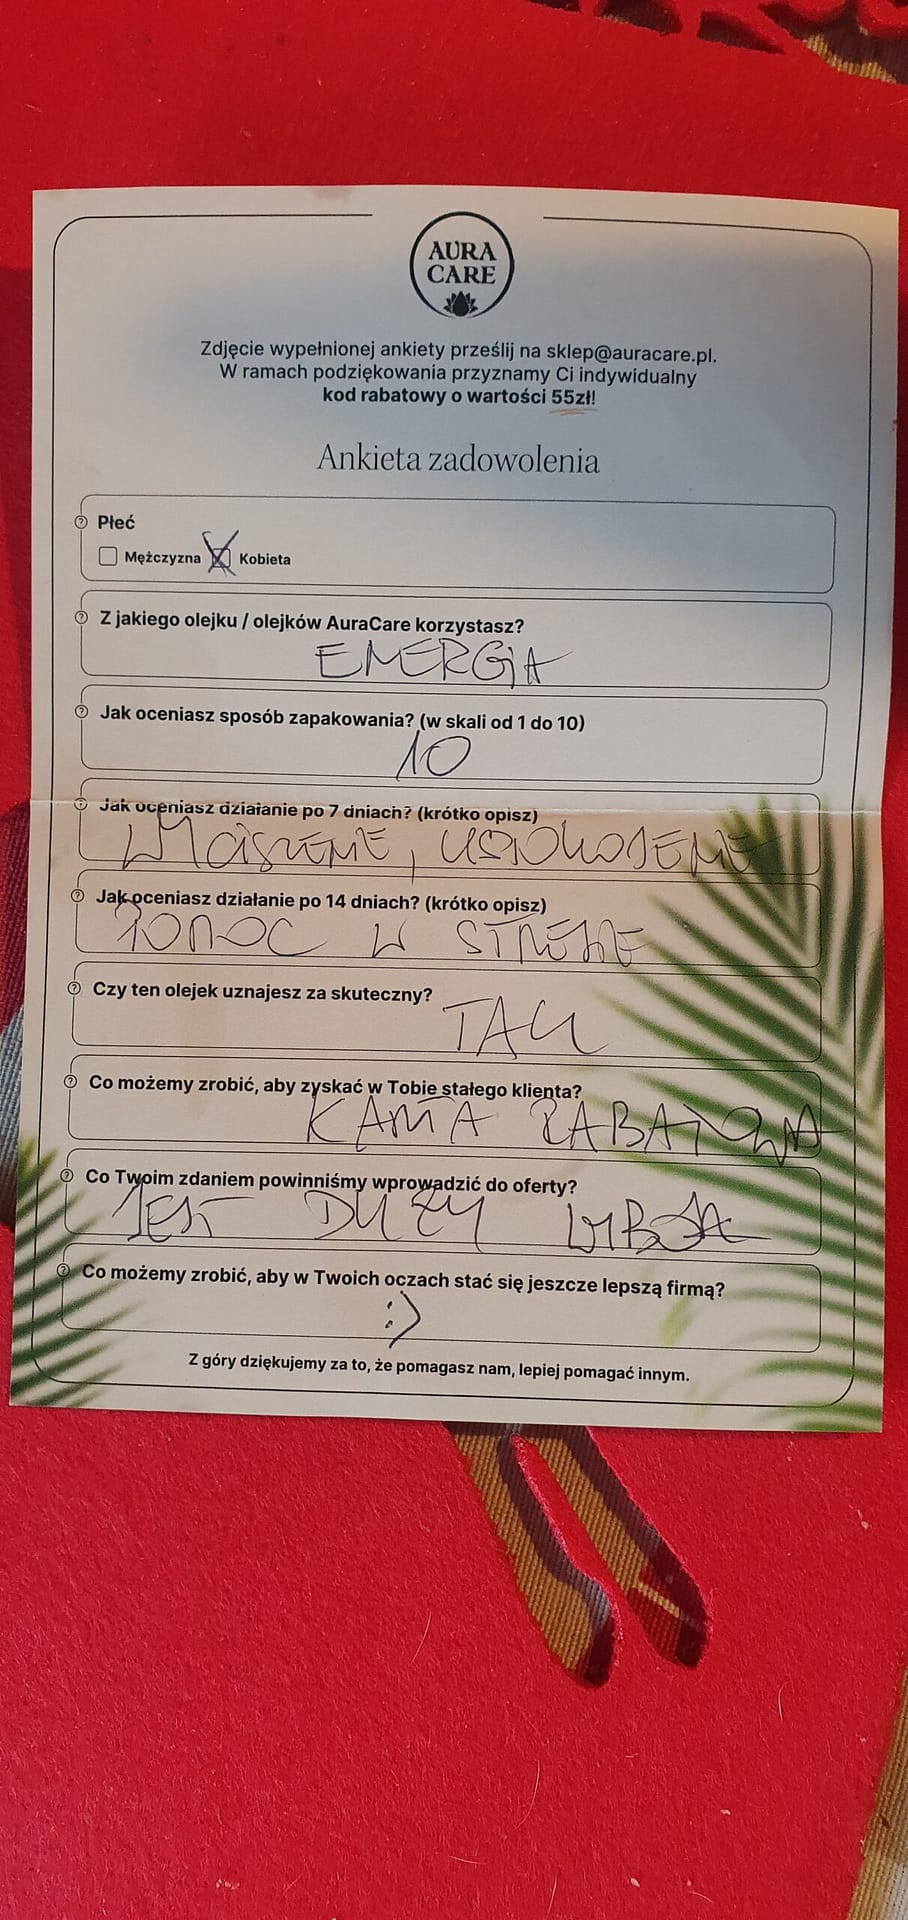 AURA
CARE
Zdjęcie wypełnionej ankiety prześlij na sklep@auracare.pl.
W ramach podziękowania przyznamy Ci indywidualny
kod rabatowy o wartości 55zł!
Ankieta zadowolenia
Płeć
Mężczyzna Kobieta
Z jakiego olejku / olejków AuraCare korzystasz?
ENERGIA
Jak oceniasz sposób zapakowania? (w skali od 1 do 10)
10
Jak oceniasz działanie po 7 dniach? (krótko opisz)
WYCISZENIE, USPOKOJENIE
Jak oceniasz działanie po 14 dniach? (krótko opisz)
POMOC W STRESIE
Czy ten olejek uznajesz za skuteczny?
TAK
Co możemy zrobić, aby zyskać w Tobie stałego klienta?
KARTA RABATOWA
Co Twoim zdaniem powinniśmy wprowadzić do oferty?
JEST DUŻY WYBÓR
Co możemy zrobić, aby w Twoich oczach stać się jeszcze lepszą firmą?
:)
Z góry dziękujemy za to, że pomagasz nam, lepiej pomagać innym.